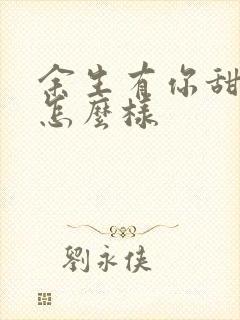 余生有你甜
怎麼樣
劉永俠